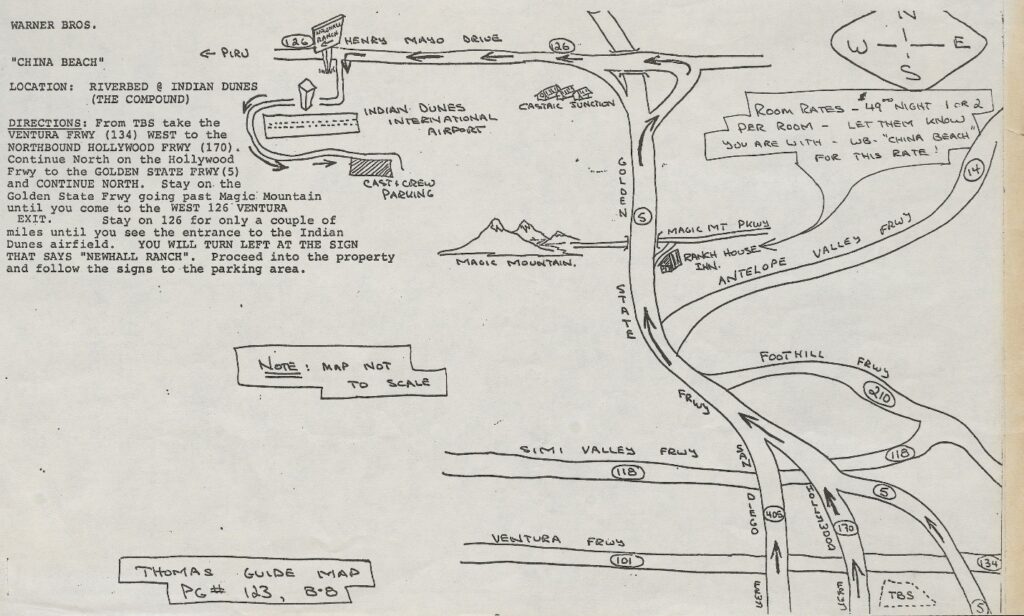 WARNER BROS.
"CHINA BEACH"
LOCATION: RIVERBED @ INDIAN DUNES
(THE COMPOUND)
DIRECTIONS: From TBS take the
VENTURA FRWY (134) WEST to the
NORTHBOUND HOLLYWOOD FRWY (170).
Continue North on the Hollywood
Frwy to the GOLDEN STATE FRWY(5)
and CONTINUE NORTH. Stay on the
Golden State Frwy going past Magic Mountain
until you come to the WEST 126 VENTURA
EXIT. Stay on 126 for only a couple of
miles until you see the entrance to the Indian
Dunes airfield. YOU WILL TURN LEFT AT THE SIGN
THAT SAYS "NEWHALL RANCH". Proceed into the property
and follow the signs to the parking area.
← PIRU
126
NEWHALL
RANCH
HENRY MAYO DRIVE
126
CASTAIC JUNCTION
INDIAN DUNES
INTERNATIONAL
AIRPORT
CAST & CREW
PARKING
N
W E
S
ROOM RATES - $49.00 NIGHT 1 OR 2
PER ROOM - LET THEM KNOW
YOU ARE WITH - WB - "CHINA BEACH"
FOR THIS RATE!
14
GOLDEN
5
STATE
FRWY
MAGIC MT PKWY
MAGIC MOUNTAIN.
RANCH HOUSE
INN.
ANTELOPE VALLEY FRWY
NOTE: MAP NOT
TO SCALE
FOOTHILL FRWY
210
SIMI VALLEY FRWY
118
118
SAN DIEGO FRWY
405
HOLLYWOOD FRWY
170
5
VENTURA FRWY
101
134
TBS
5
THOMAS GUIDE MAP
PG# 123, B-8